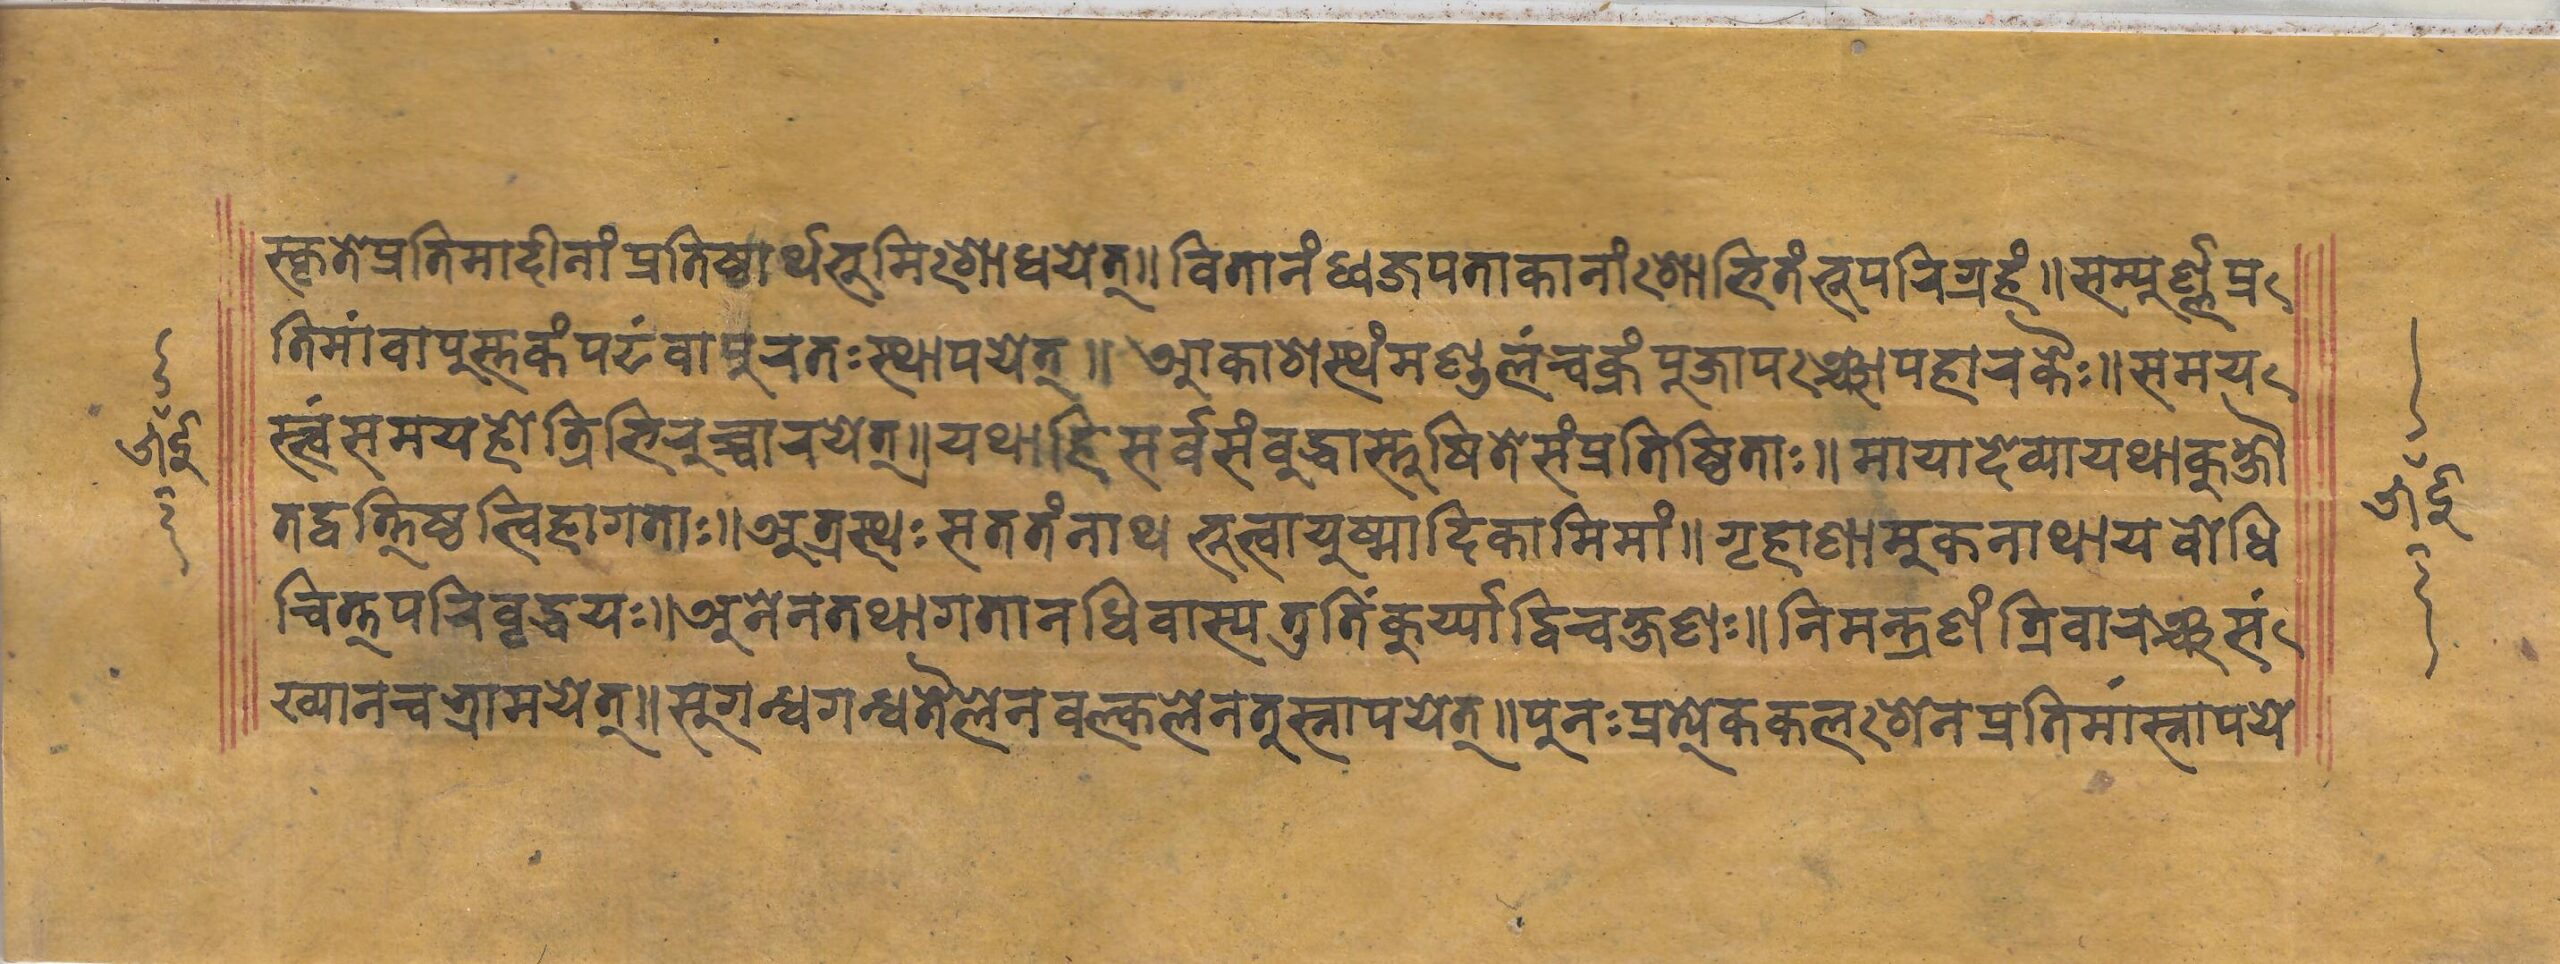 स्कृतेप्रतिमादीनां प्रतिष्ठार्थभूमिशोधयेत्॥ वितानं ध्वजपताकानां शोभितं भूपरिग्रहं॥ सम्पूर्ण्णप्र
तिमां वा पुस्तकं पटं वा पुरतः स्थापयेत्॥ आकाशेस्थं मण्डलं चक्रं पूजापञ्चोपहारकैः॥ समय
स्त्वं समयहो त्रिभिरुच्चारयेत्॥ यथा हि सर्वसंबुद्धास्तुषिते संप्रतिष्ठिताः॥ मायादेव्या यथा कुक्षौ
तद्वत्तिष्ठत्विहागताः॥ अत्रस्थः सततं नाथ भुत्वायुष्मादिकामिमां॥ गृहाणामुकनाथाय बोधि
चित्तपरिवृद्धयः॥ अनेन तथागतानधिवास्य तुतिं कुर्य्याद्विचक्षणः॥ निमन्त्रणं त्रिवारञ्च सं
ख्यानच भ्रामयेत्॥ सुगन्धगन्धतैलेन वल्कलेन तु स्नापयेत्॥ पुनः प्रत्येककलशेन प्रतिमां स्नापये